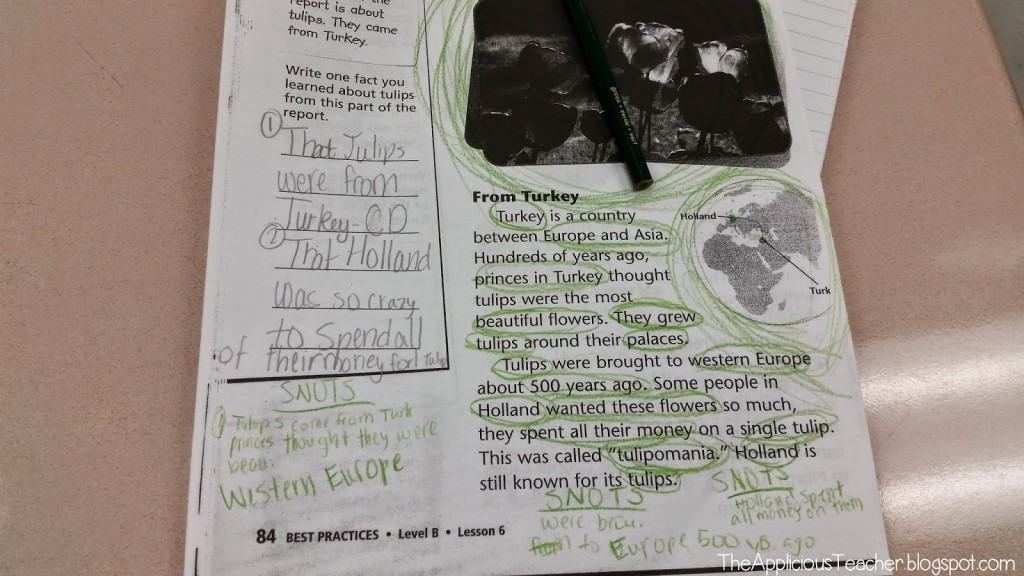 report is about
tulips. They came
from Turkey.
Write one fact you
learned about tulips
from this part of the
report.
① That Tulips
were from
Turkey-CD
② That Holland
was so crazy
to Spend all
of their money for Tulip
SNOTS
① Tulips come from Turk
princes thought they were
beau.
Western Europe
84 BEST PRACTICES • Level B • Lesson 6
From Turkey
Turkey is a country
between Europe and Asia.
Hundreds of years ago,
princes in Turkey thought
tulips were the most
beautiful flowers. They grew
tulips around their palaces.
Tulips were brought to western Europe
about 500 years ago. Some people in
Holland wanted these flowers so much,
they spent all their money on a single tulip.
This was called "tulipomania." Holland is
still known for its tulips.
Holland
Turk
SNOTS
were brou.
to Europe 500 ago
SNOTS
Holland spent
all money on them
TheAppliciousTeacher.blogspot.com